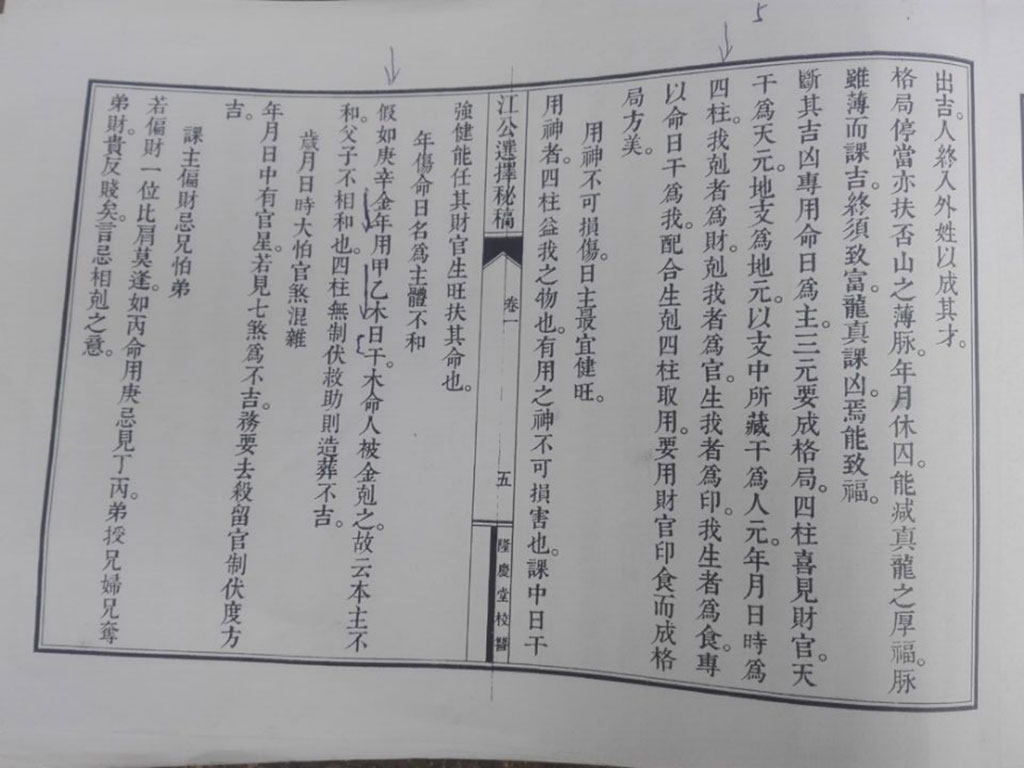 5
出吉。人終入外姓以成其才。
格局停當亦扶否山之薄脈。年月休囚。能減真龍之厚福。脈
雖薄而課吉。終須致富。龍真課凶。焉能致福。
斷其吉凶專用命日為主。三元要成格局。四柱喜見財官。天
干為天元。地支為地元。以支中所藏干為人元。年月日時為
四柱。我剋者為財。剋我者為官。生我者為印。我生者為食。專
以命日干為我。配合生剋四柱取用。要用財官印食而成格
局方美。
用神不可損傷。日主最宜健旺。
用神者。四柱益我之物也。有用之神不可損害也。課中日干
江公選擇秘稿
卷一
五
隆慶堂校讐
強健能任其財官生旺扶其命也。
年傷命日名為主體不和
假如庚辛金年用甲乙木日干。木命人被金剋之。故云本主不
和。父子不相和也。四柱無制伏救助則造葬不吉。
歲月日時大怕官煞混雜
年月日中有官星。若見七煞為不吉。務要去殺留官制伏度方
吉。
課主偏財忌兄怕弟
若偏財一位比肩莫逢。如丙命用庚忌見丁丙。弟授兄婦兄奪
弟財。貴反賤矣。言忌相剋之意。